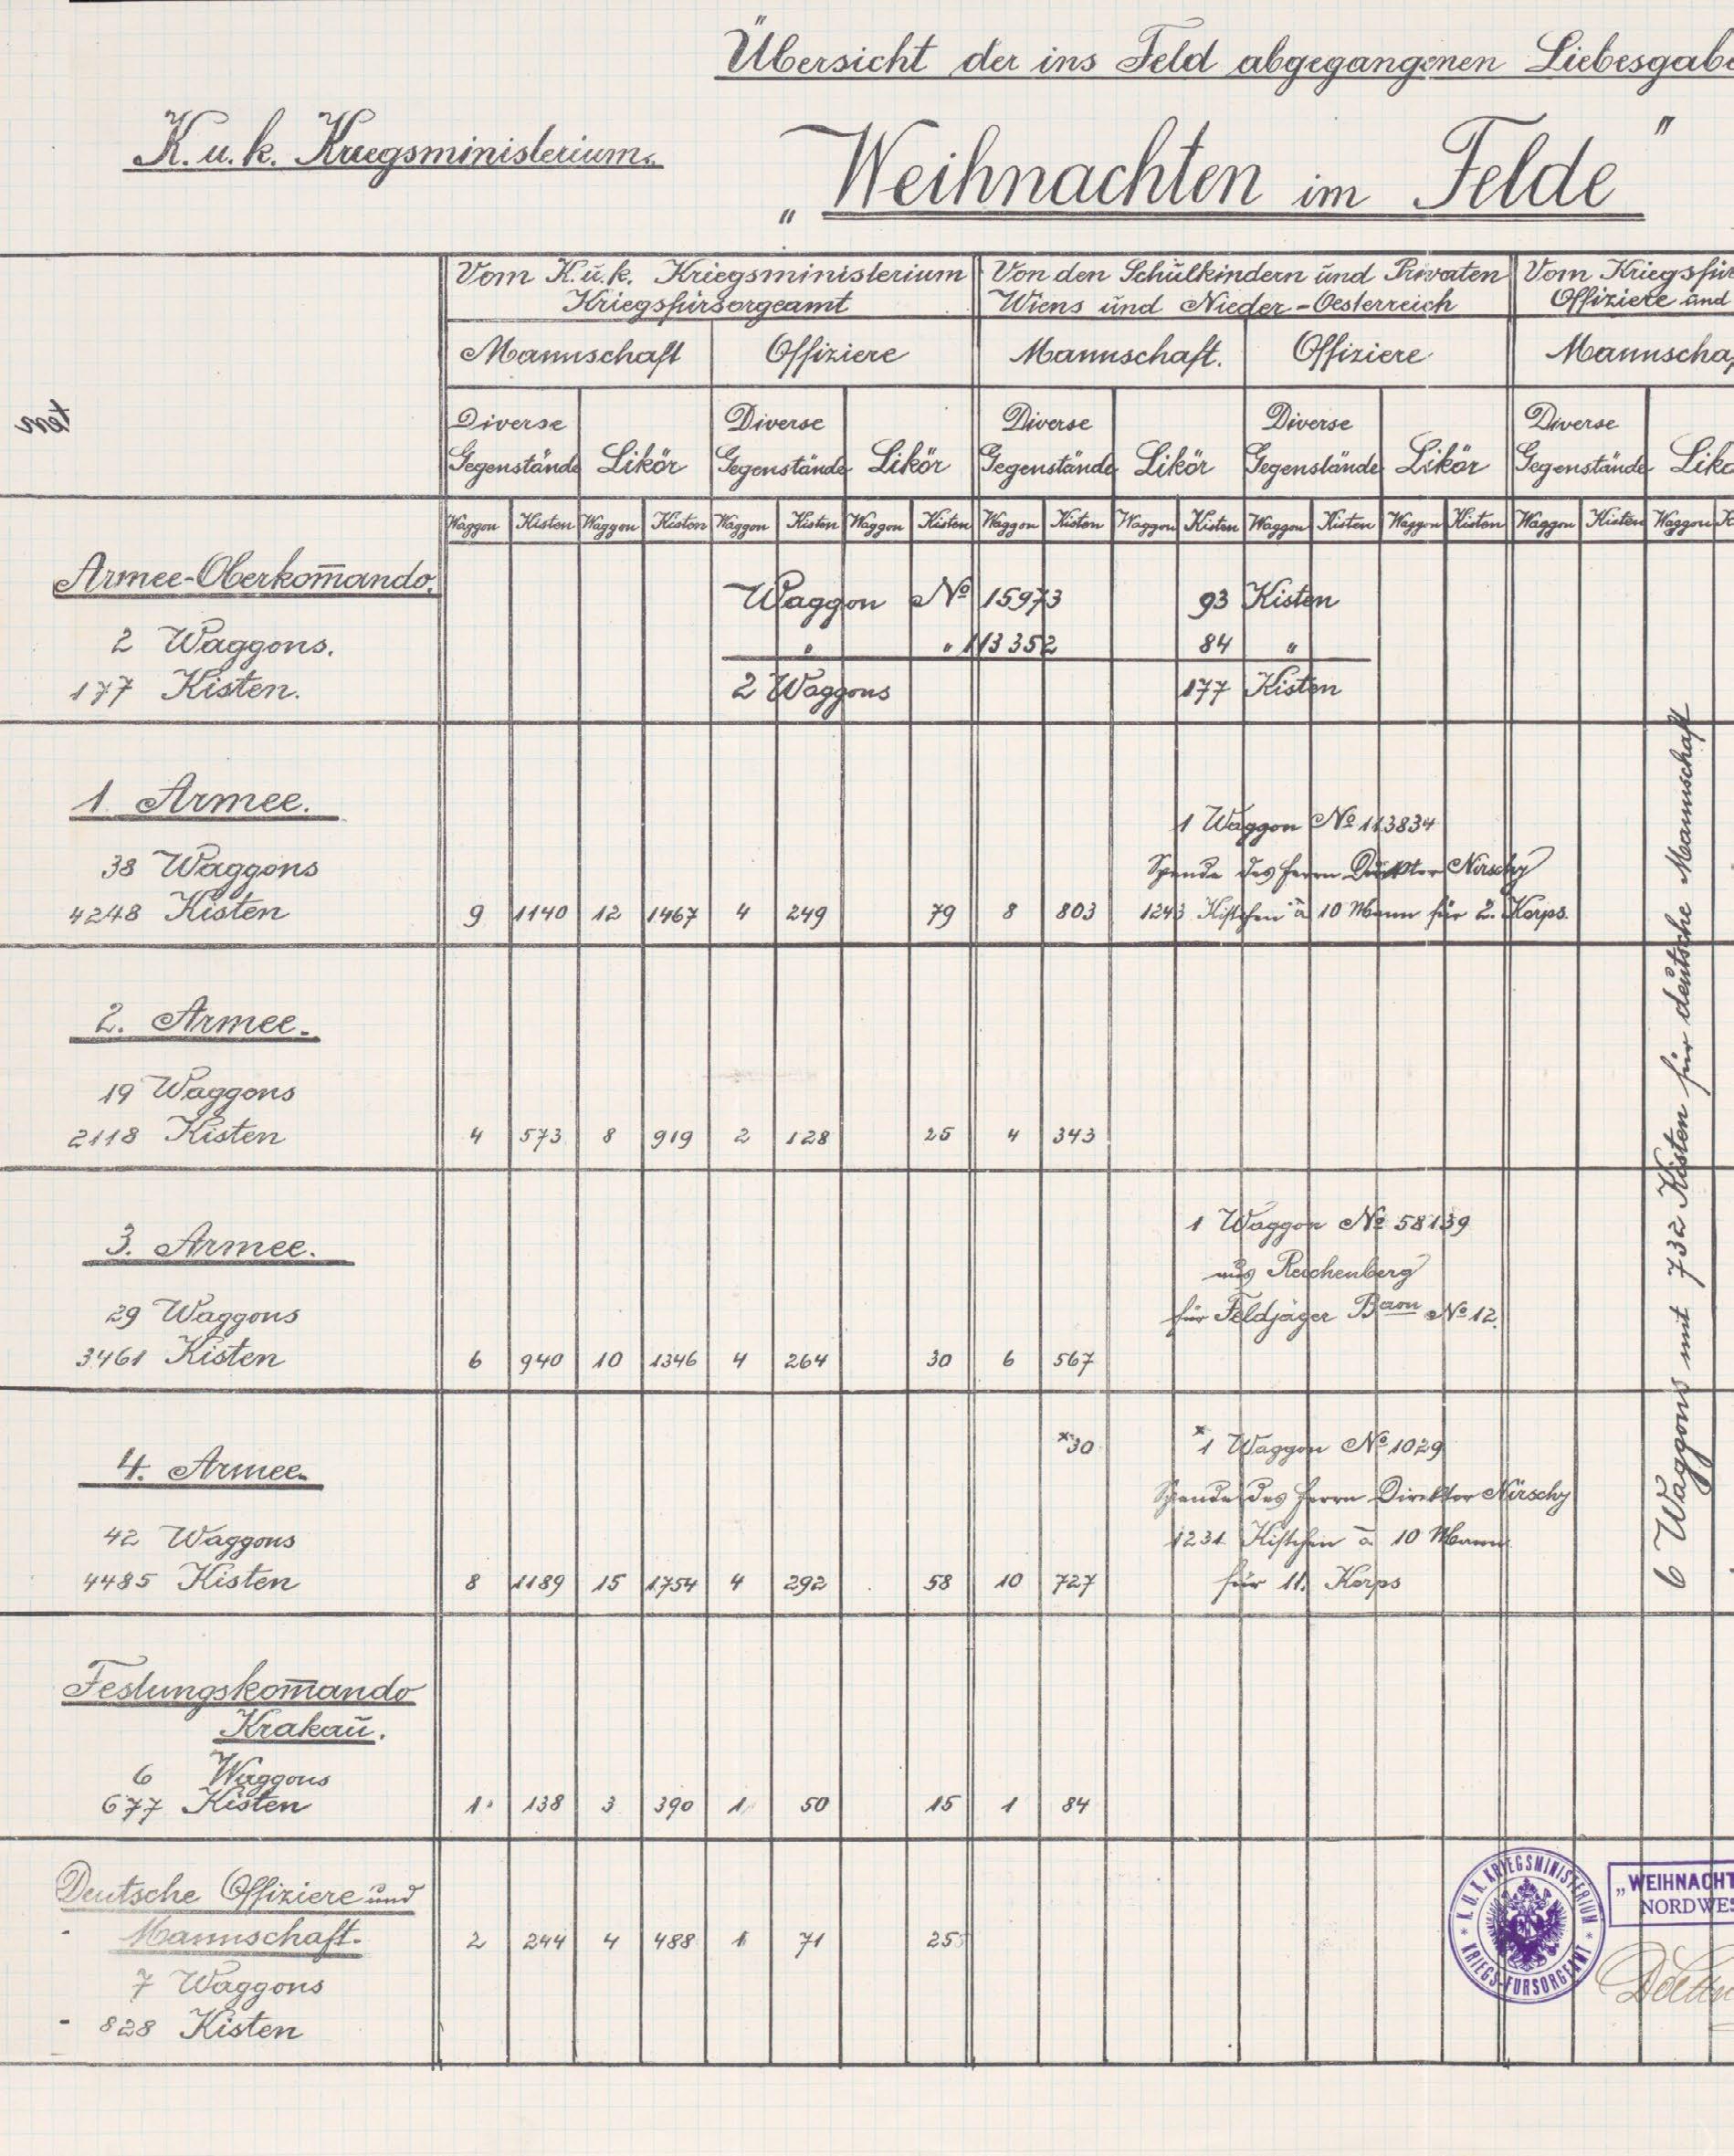 Übersicht der ins Feld abgegangenen Liebesgabe
K. u. k. Kriegsministerium.
„Weihnachten im Felde"
Vom K. u. k. Kriegsministerium Kriegsfürsorgeamt
Von den Schulkindern und Privaten Wiens und Nieder-Oesterreich
Vom Kriegsfür
Offiziere und
Mannschaft Offiziere Mannschaft. Offiziere Mannschaf
Diverse Gegenstände Likör Diverse Gegenstände Likör Diverse Gegenstände Likör Diverse Gegenstände Likör Diverse Gegenstände Likö
Waggon Kisten Waggon Kisten Waggon Kisten Waggon Kisten Waggon Kisten Waggon Kisten Waggon Kisten Waggon Kisten Waggon Kisten Waggon K
Armee-Oberkom̄ando.
Waggon № 15973 93 Kisten
2 Waggons. " " 113352 84 "
177 Kisten. 2 Waggons 177 Kisten
1 Armee.
1 Waggon № 113834
38 Waggons Spende des Herrn Direktor Nirschy
4248 Kisten 9 1140 12 1467 4 249 79 8 803 1243 Kistchen à 10 Mann für 2. Korps.
2. Armee.
19 Waggons
2118 Kisten 4 573 8 919 2 128 25 4 343
1 Waggon № 58139
3. Armee. aus Reichenberg
29 Waggons für Feldjäger Baon № 12.
3461 Kisten 6 940 10 1346 4 264 30 6 567
×30 ×1 Waggon № 1029
4. Armee. Spende des Herrn Direktor Nirschy
42 Waggons 1231 Kistchen à 10 Mann
4485 Kisten 8 1189 15 1754 4 292 58 10 727 für 11. Korps
6 Waggons mit 732 Kisten für deutsche Mannschaft
Festungskom̄ando
Krakau.
6 Waggons
677 Kisten 1 138 3 390 1 50 15 1 84
Deutsche Offiziere und
Mannschaft. 2 244 4 488 1 71 25
7 Waggons
828 Kisten
K. U. K. KRIEGSMINISTERIUM * KRIEGS-FÜRSORGEAMT *
„WEIHNACHT
NORDWES